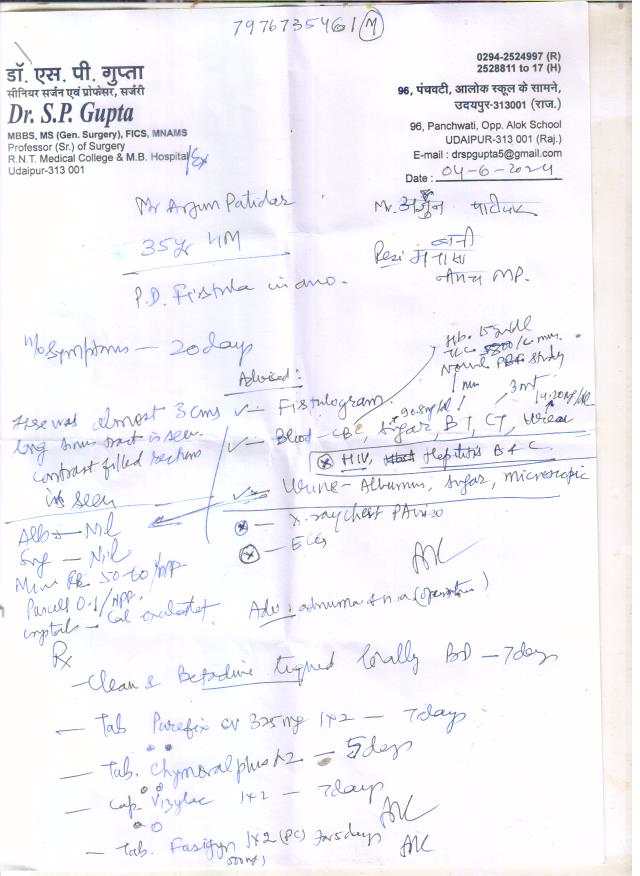 7976735461 (M)
डॉ. एस. पी. गुप्ता
सीनियर सर्जन एवं प्रोफेसर, सर्जरी
Dr. S.P. Gupta
MBBS, MS (Gen. Surgery), FICS, MNAMS
Professor (Sr.) of Surgery
R.N.T. Medical College & M.B. Hospital/Ex
Udaipur-313 001
0294-2524997 (R)
2528811 to 17 (H)
96, पंचवटी, आलोक स्कूल के सामने,
उदयपुर-313001 (राज.)
96, Panchwati, Opp. Alok School
UDAIPUR-313 001 (Raj.)
E-mail : drspgupta5@gmail.com
Date : 04-6-2024
Mr Arjun Patidar
35yr
P.D. Fistula in ano.
Mr. अर्जुन
Resi
MP.
Symptoms — 20 days
Hb. 15
TLC /c mm.
Normal study
Advised:
Fistulogram.
90.8mg/dl
3 mt
Blood - CBC, Sugar, BT, CT, Urea
HIV, Hepatitis B & C.
Urine - Albumin, Sugar, Microscopic
X-ray chest PA view
ECG
almost 3 cms
long sinus tract is seen.
contrast filled rectum
is seen
Alb - Nil
Sug - Nil
50-60/HPF
0-1/HPF.
Cal oxalate
Adv: (operation)
Rx
- Clean & Betadine locally BD — 7 days
— Tab CV 325mg 1x2 — 7 days
— Tab. Chymoral plus 1x2 — 5 days
- Cap. Vizylac 1x2 — 7 days
— Tab. Fasigyn 1x2 (PC) for 5 days
500mg)